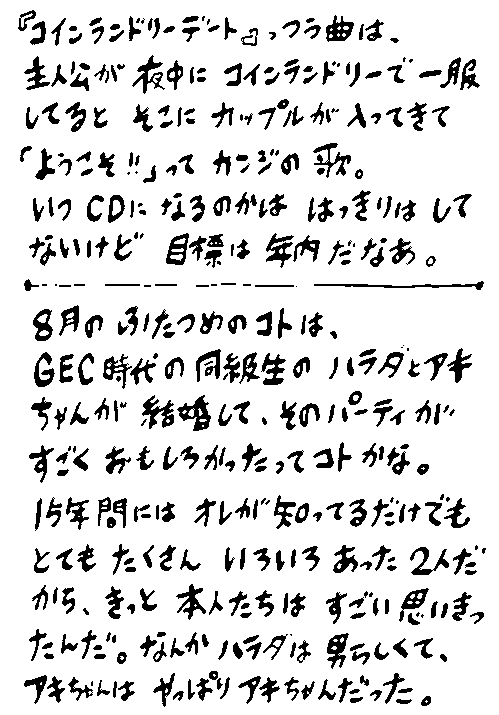 『コインランドリーデート』っつう曲は、
主人公が夜中にコインランドリーで一服
してるとそこにカップルが入ってきて
「ようこそ!!」ってカンジの歌。
いつCDになるのかははっきりはして
ないけど目標は年内だなあ。
8月のふたつめのコトは、
GEC時代の同級生のハラダとアキ
ちゃんが結婚して、そのパーティが
すごくおもしろかったってコトかな。
15年間にはオレが知ってるだけでも
とてもたくさんいろいろあった2人だ
から、きっと本人たちはすごい思いきっ
たんだ。なんかハラダは男らしくて、
アキちゃんはやっぱりアキちゃんだった。